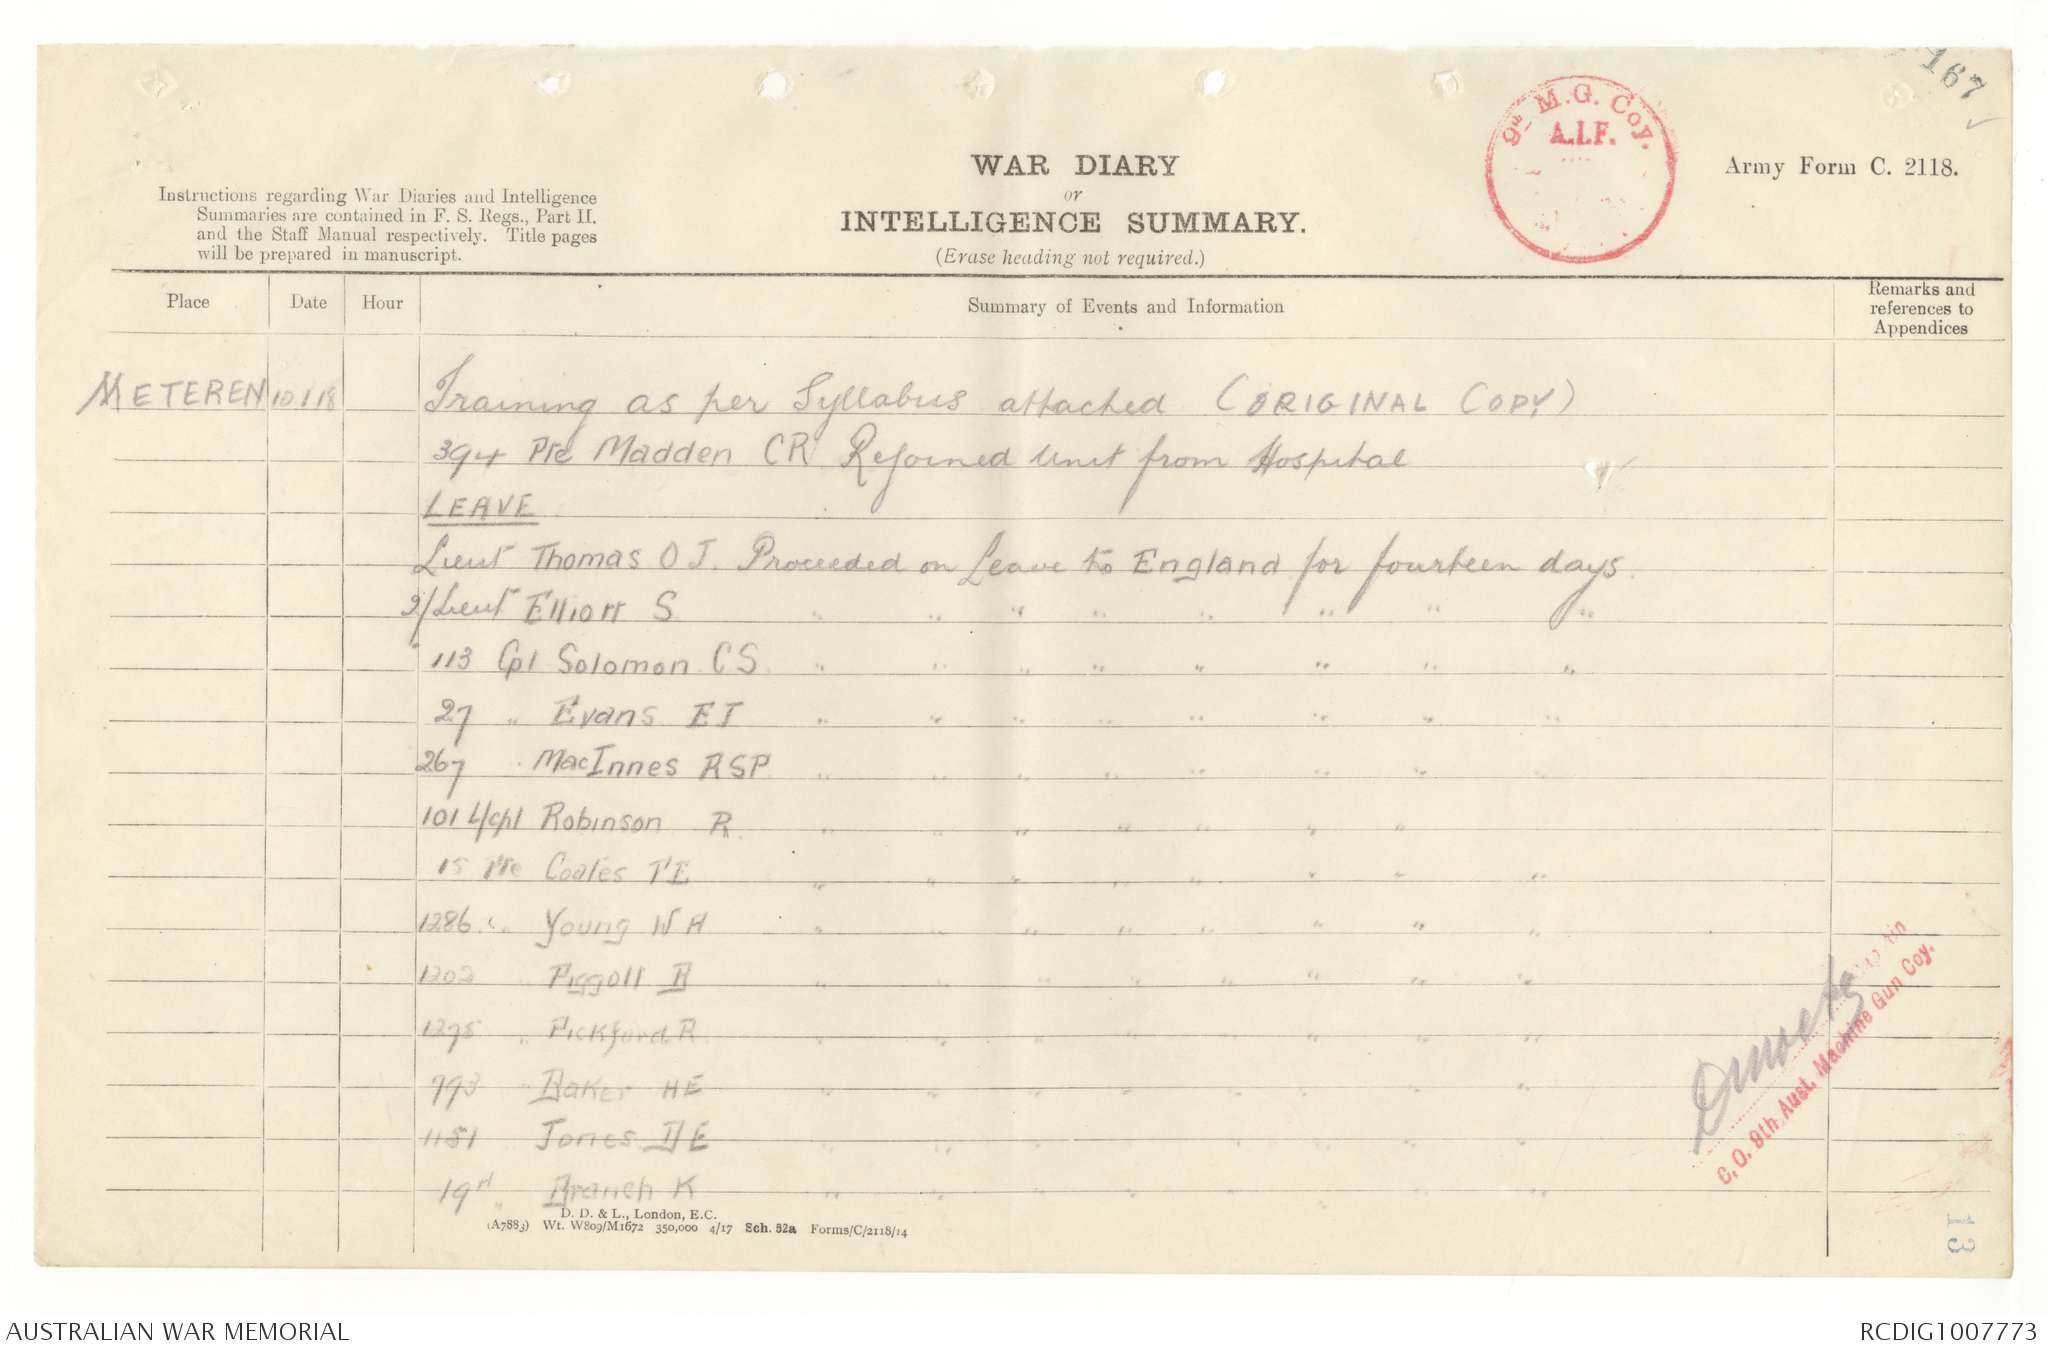 167
9th M.G. Coy.
A.I.F.
WAR DIARY
or
INTELLIGENCE SUMMARY.
(Erase heading not required.)
Army Form C. 2118.
Instructions regarding War Diaries and Intelligence
Summaries are contained in F. S. Regs., Part II.
and the Staff Manual respectively. Title pages
will be prepared in manuscript.
Place Date Hour Summary of Events and Information Remarks and references to Appendices
METEREN 10/1/18 Training as per Syllabus attached (ORIGINAL COPY)
394 Pte Madden CR Rejoined Unit from Hospital
LEAVE
Lieut Thomas O J. Proceeded on Leave to England for fourteen days.
2/Lieut Elliott S " " " " " " " "
113 Cpl Solomon CS " " " " " " " "
27 " Evans EJ " " " " " " " "
267 " MacInnes RSP " " " " " " "
101 L/Cpl Robinson R. " " " " " " "
15 Pte Coales TE " " " " " " " "
1286 " Young WH " " " " " " " "
1202 Piggott " " " " " " " "
1275 " Pickford R " " " " " " " "
793 " Baker HE " " " " " " " "
1151 Jones E " " " " " " " "
19 " Branch K " " " " " " " "
C.O. 9th Aust. Machine Gun Coy.
D. D. & L., London, E.C.
(A7883) Wt. W809/M1672 350,000 4/17 Sch. 52a Forms/C/2118/14
3
AUSTRALIAN WAR MEMORIAL
RCDIG1007773